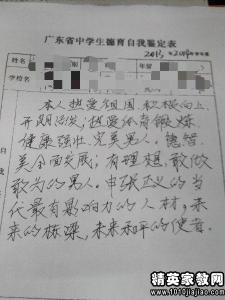 广东省中学生德育自我鉴定表
姓名
年留
学校名
本人热爱祖国 积极向上
开朗活泼,热爱体育锻炼
健康强壮 完美男人。德智
美全面发展,有理想敢做
敢为的男人。申张正义的当
代最有影响力的人材,未
来的栋梁,未来和平的使者。
自
我
精英家教网
www.1010jiajiao.com